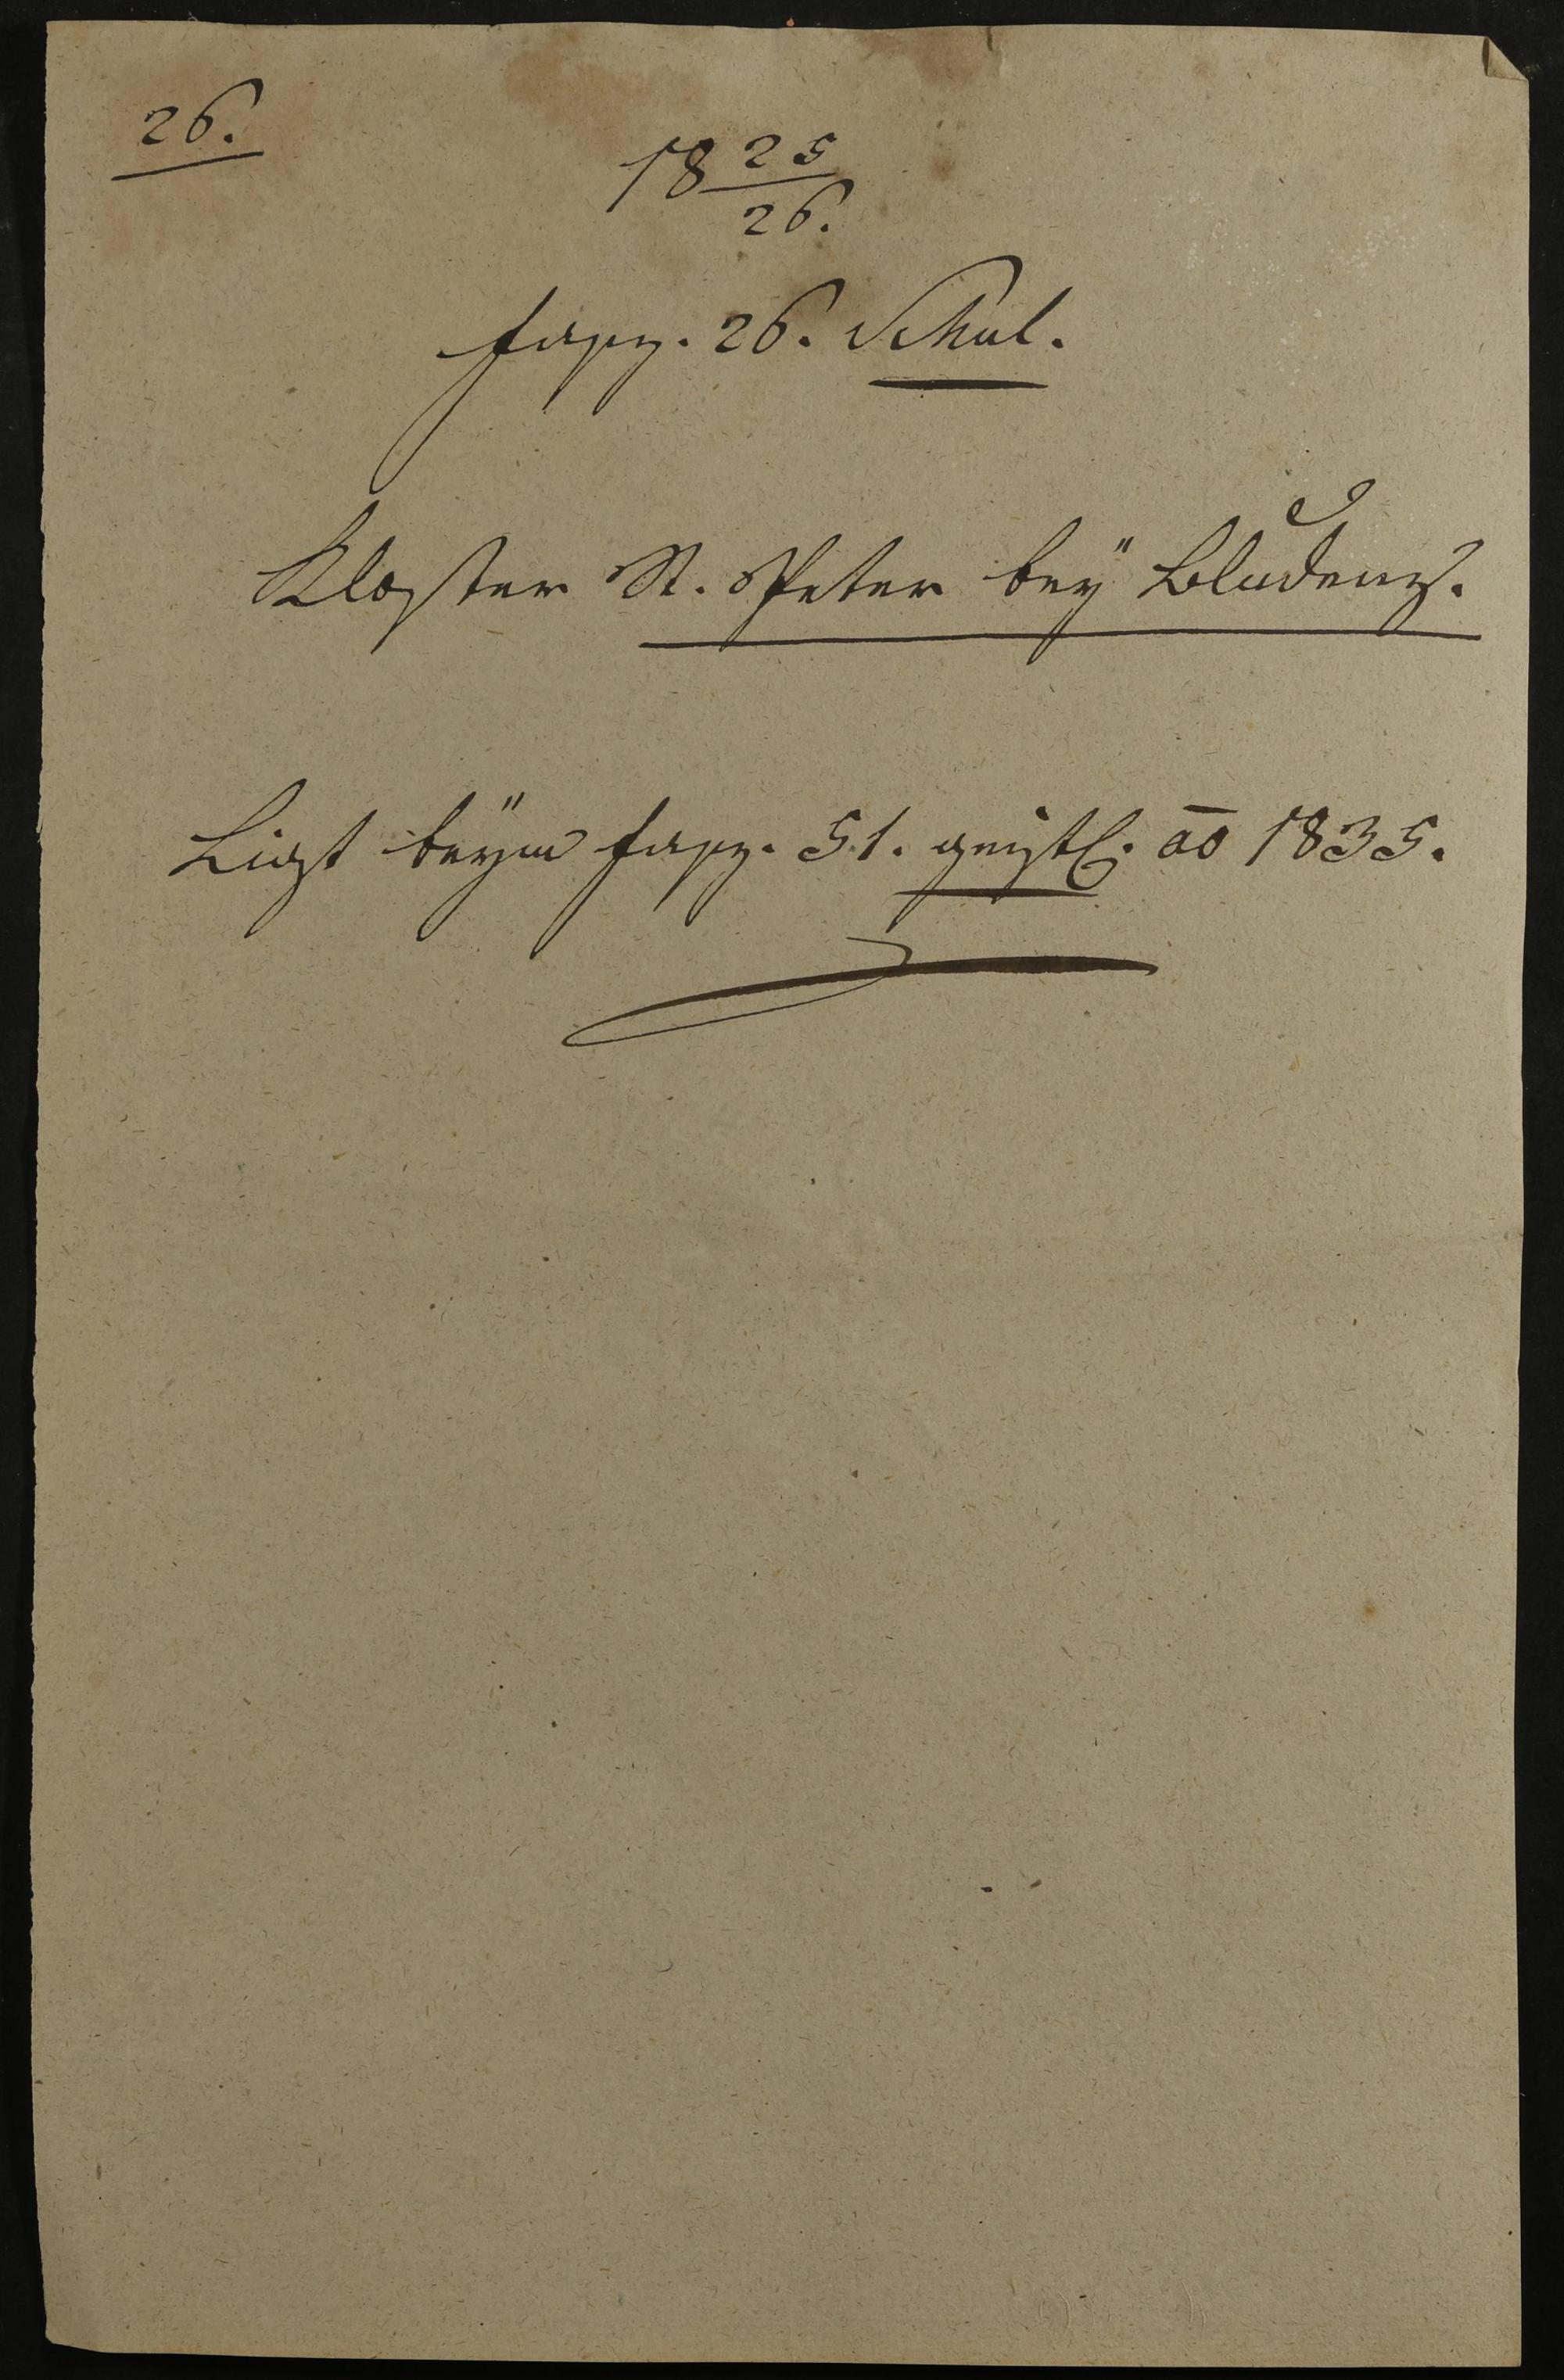 26.
18 25/26.
fasz. 26. Schul.
Kloster St. Peter bey Bludenz.
Liegt beym fasz. 51. geistl. ao 1835.